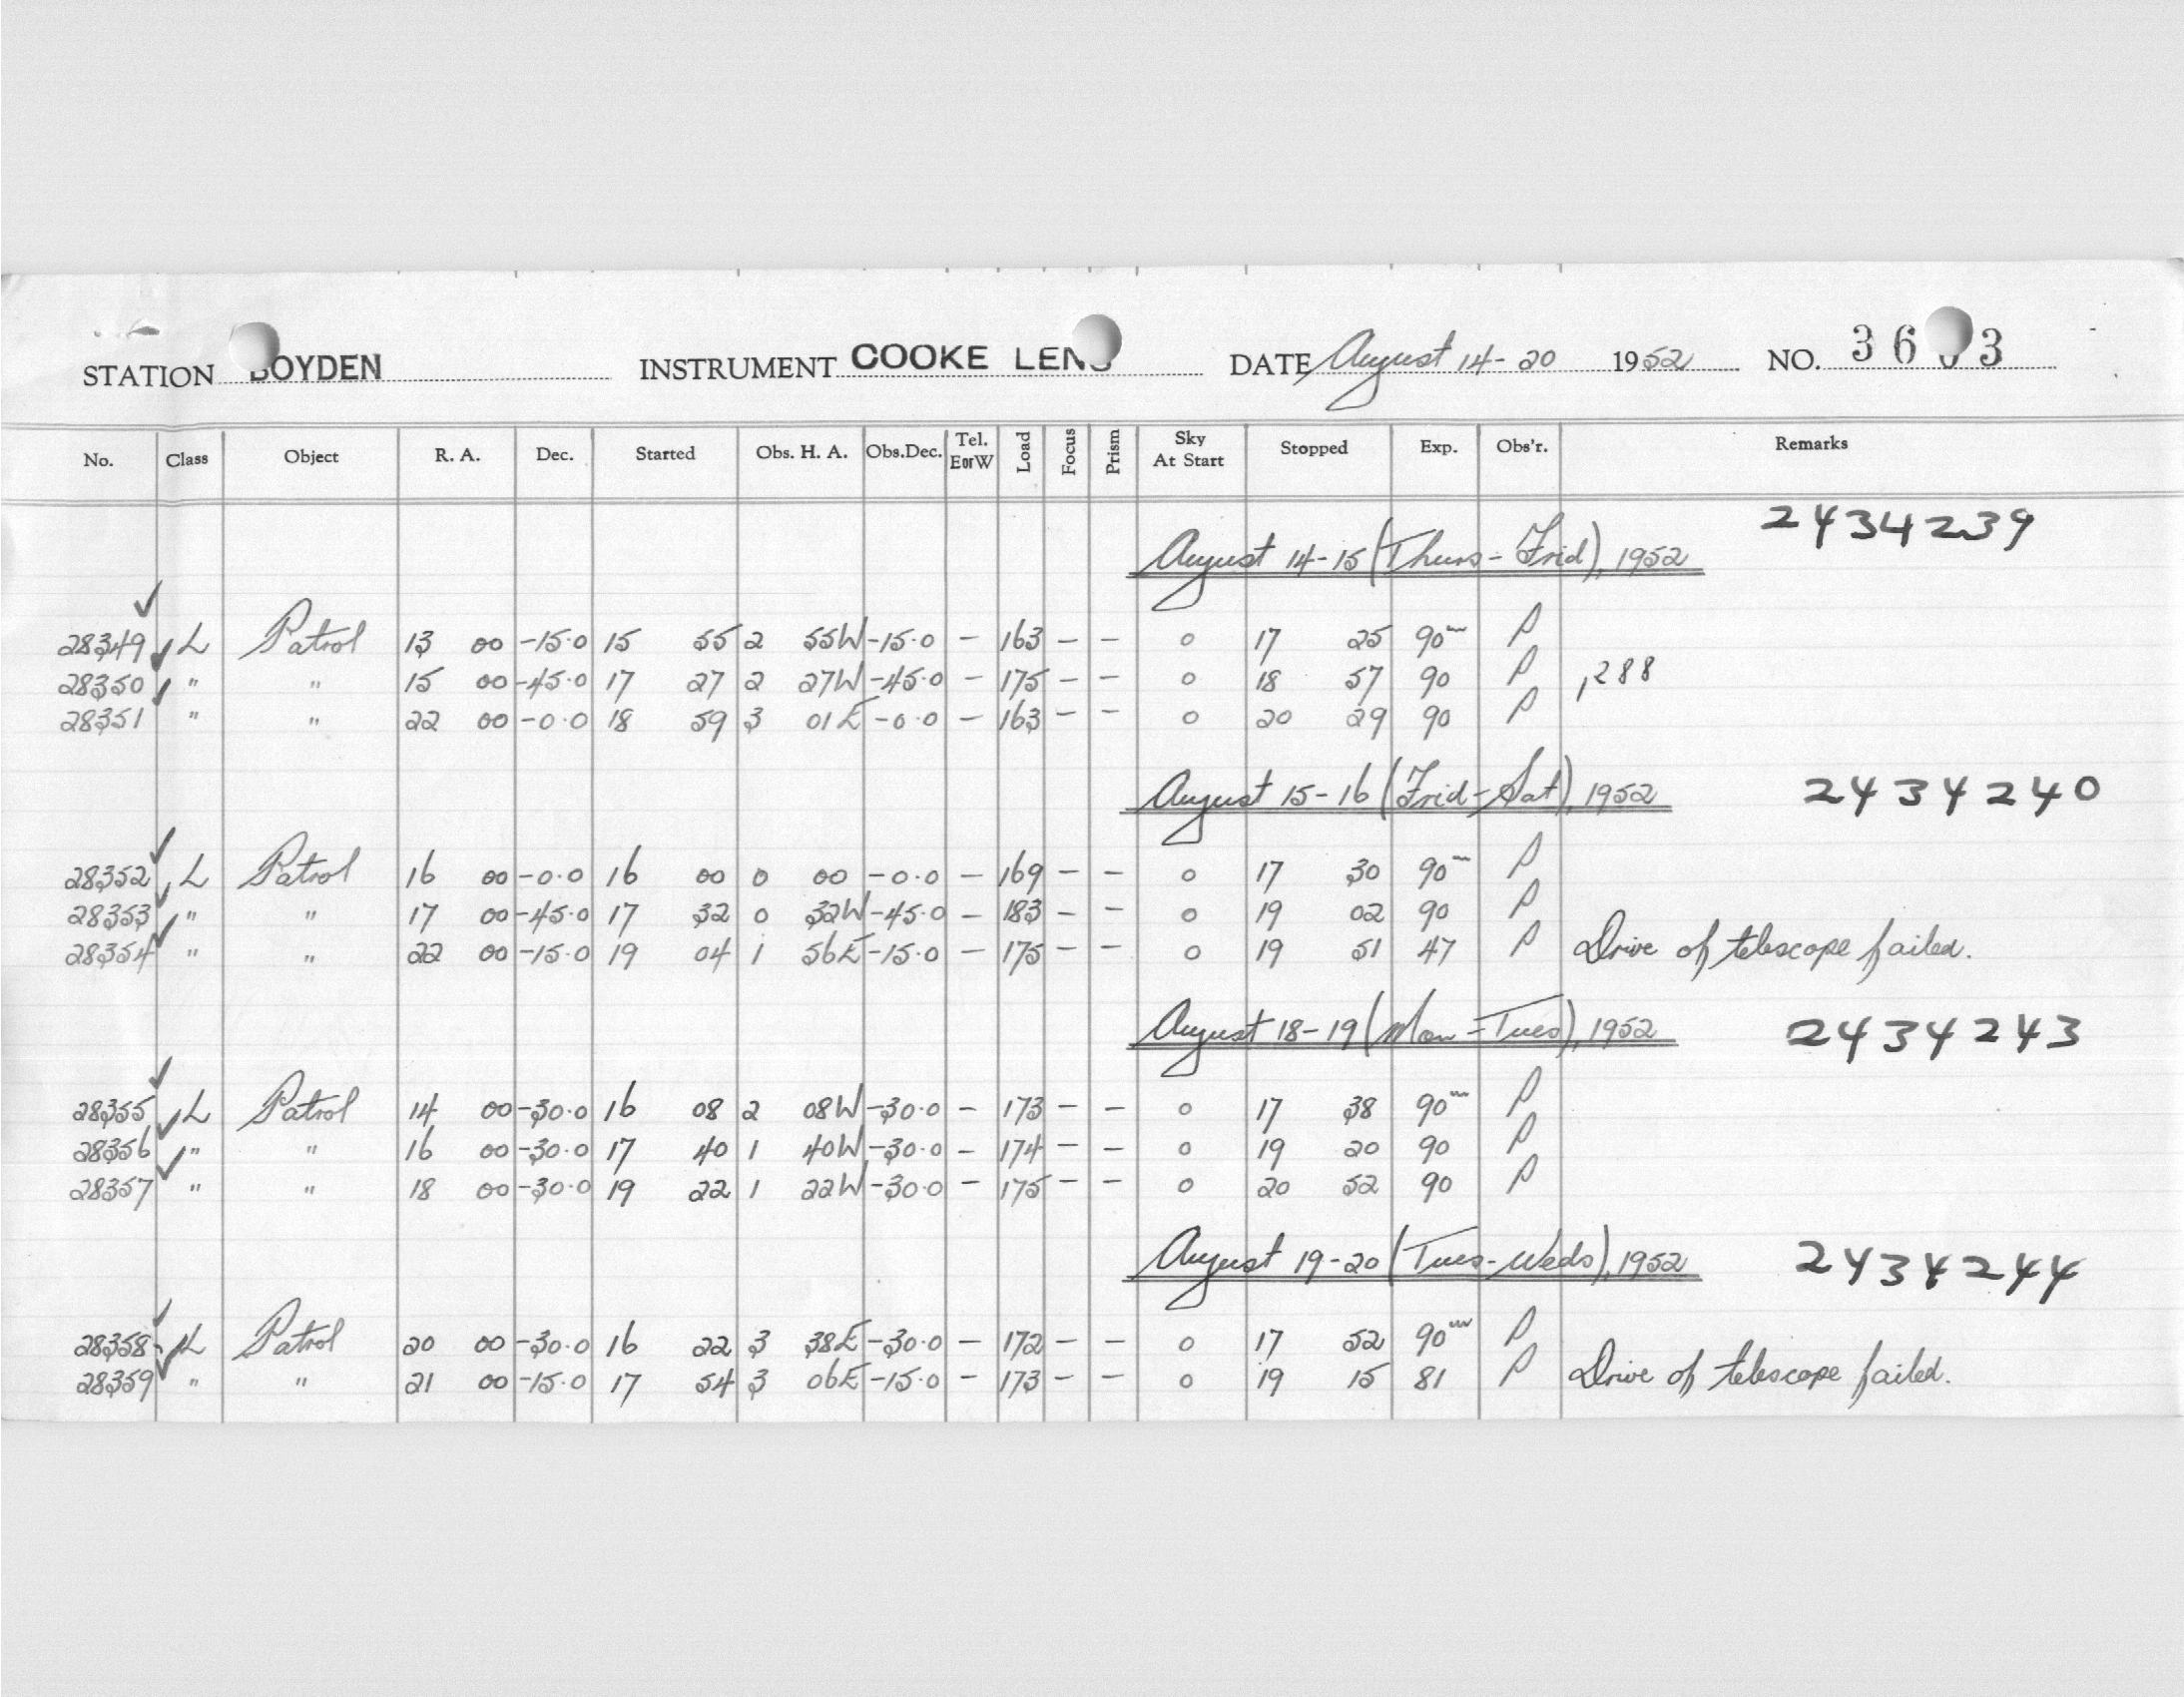 STATION BOYDEN INSTRUMENT COOKE LENS DATE August 14-20 1952 NO. 3603
No. Class Object R. A. Dec. Started Obs. H. A. Obs.Dec. Tel. E or W Load Focus Prism Sky At Start Stopped Exp. Obs'r. Remarks
2434239
August 14-15 (Thurs-Frid), 1952
28349 L Patrol 13 00 -15.0 15 55 2 55W -15.0 - 163 - - 0 17 25 90m P
28350 " " 15 00 -45.0 17 27 2 27W -45.0 - 175 - - 0 18 57 90 P ,288
28351 " " 22 00 -0.0 18 59 3 01E -0.0 - 163 - - 0 20 29 90 P
August 15-16 (Frid-Sat), 1952 2434240
28352 L Patrol 16 00 -0.0 16 00 0 00 -0.0 - 169 - - 0 17 30 90m P
28353 " " 17 00 -45.0 17 32 0 32W -45.0 - 183 - - 0 19 02 90 P
28354 " " 22 00 -15.0 19 04 1 56E -15.0 - 175 - - 0 19 51 47 P Drive of telescope failed.
August 18-19 (Mon-Tues), 1952 2434243
28355 L Patrol 14 00 -30.0 16 08 2 08W -30.0 - 173 - - 0 17 38 90m P
28356 " " 16 00 -30.0 17 40 1 40W -30.0 - 174 - - 0 19 20 90 P
28357 " " 18 00 -30.0 19 22 1 22W -30.0 - 175 - - 0 20 52 90 P
August 19-20 (Tues-Weds), 1952 2434244
28358 L Patrol 20 00 -30.0 16 22 3 38E -30.0 - 172 - - 0 17 52 90m P
28359 " " 21 00 -15.0 17 54 3 06E -15.0 - 173 - - 0 19 15 81 P Drive of telescope failed.